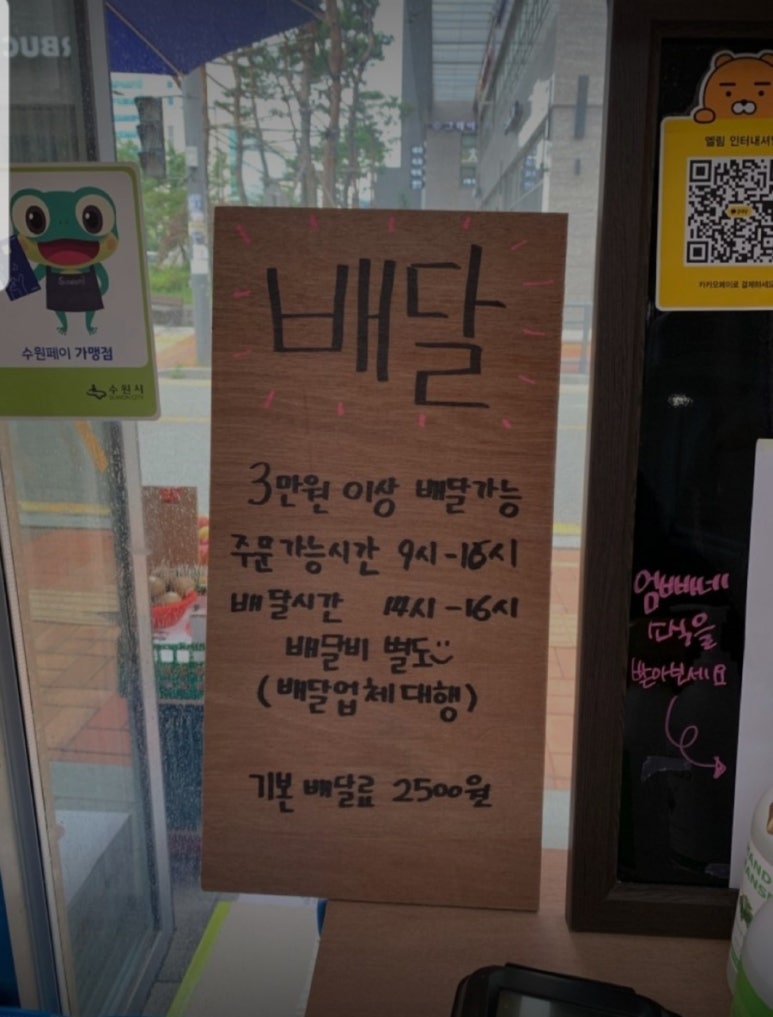 Suwon
수원페이 가맹점
수원시
SUWON CITY
배달
3만원 이상 배달가능
주문가능시간 9시-16시
배달시간 14시-16시
배달비 별도
(배달업체대행)
기본 배달료 2500원
엘림 인터내셔
카카오페이로 결제하세요
엄빠네
소식을
받아보세요